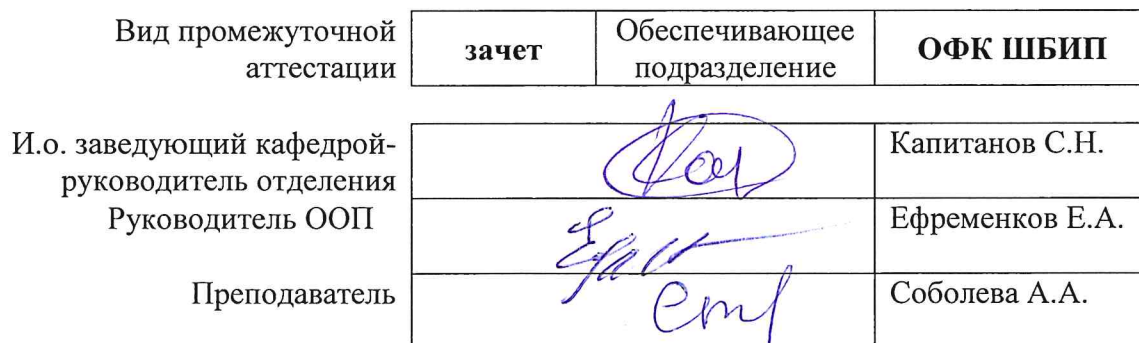 Вид промежуточной аттестации
зачет
Обеспечивающее подразделение
ОФК ШБИП
И.о. заведующий кафедрой-
руководитель отделения
Капитанов С.Н.
Руководитель ООП
Ефременков Е.А.
Преподаватель
Соболева А.А.